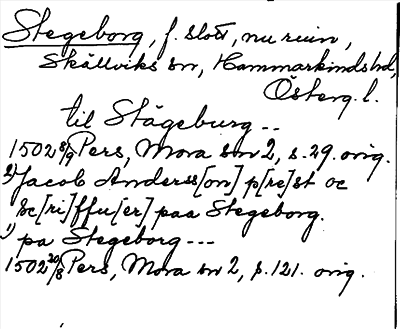 Stegeborg, f. slott, nu ruin,
Skällviks sn, Hammarkinds hd,
Österg. l.
til Stägeburg --
1502 8/9 Pers, Mora sn 2, s. 29. orig.
2) Jacob Anderss[on] p[re]st oc
Sc[ri]ffu[er] paa Stegeborg.
1) pa Stegeborg ---
1502 20/8 Pers, Mora sn 2, s. 121. orig.